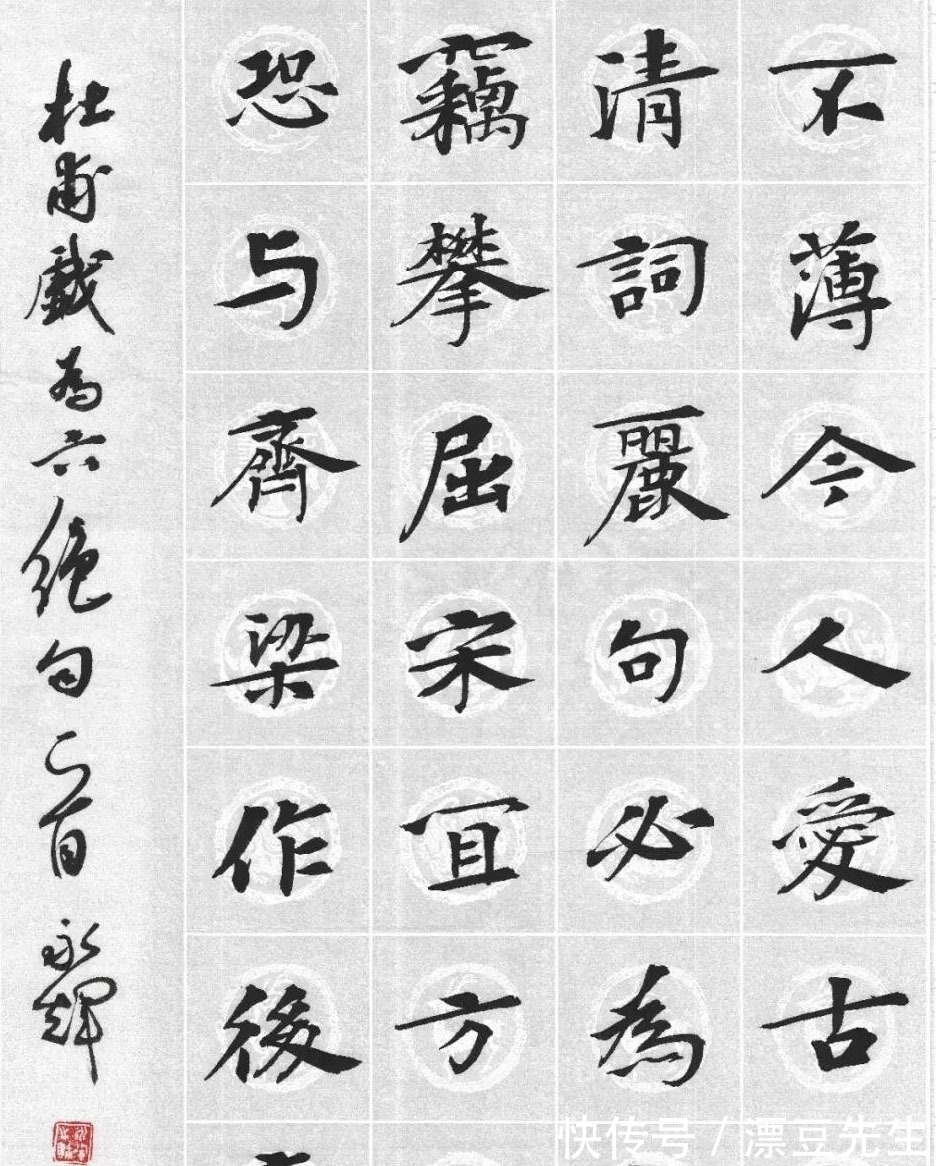 不薄今人愛古
清詞麗句必為
竊攀屈宋宜方
恐与齊梁作後
杜甫戲為六絕句一首 永輝
快传号 / 漂豆先生